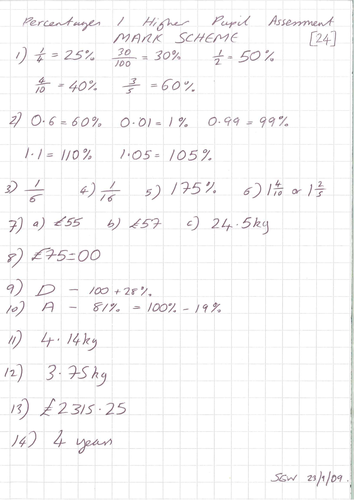 Percentages 1 Higher Pupil Assessment
MARK SCHEME [24]
1) 1/4 = 25% 30/100 = 30% 1/2 = 50%
4/10 = 40% 3/5 = 60%
2) 0.6 = 60% 0.01 = 1% 0.99 = 99%
1.1 = 110% 1.05 = 105%
3) 1/6 4) 1/16 5) 175% 6) 1 4/10 or 1 2/5
7) a) £55 b) £57 c) 24.5kg
8) £75=00
9) D - 100 + 28%
10) A - 81% = 100% - 19%
11) 4.14kg
12) 3.75kg
13) £2315.25
14) 4 years
SGW 23/9/09.